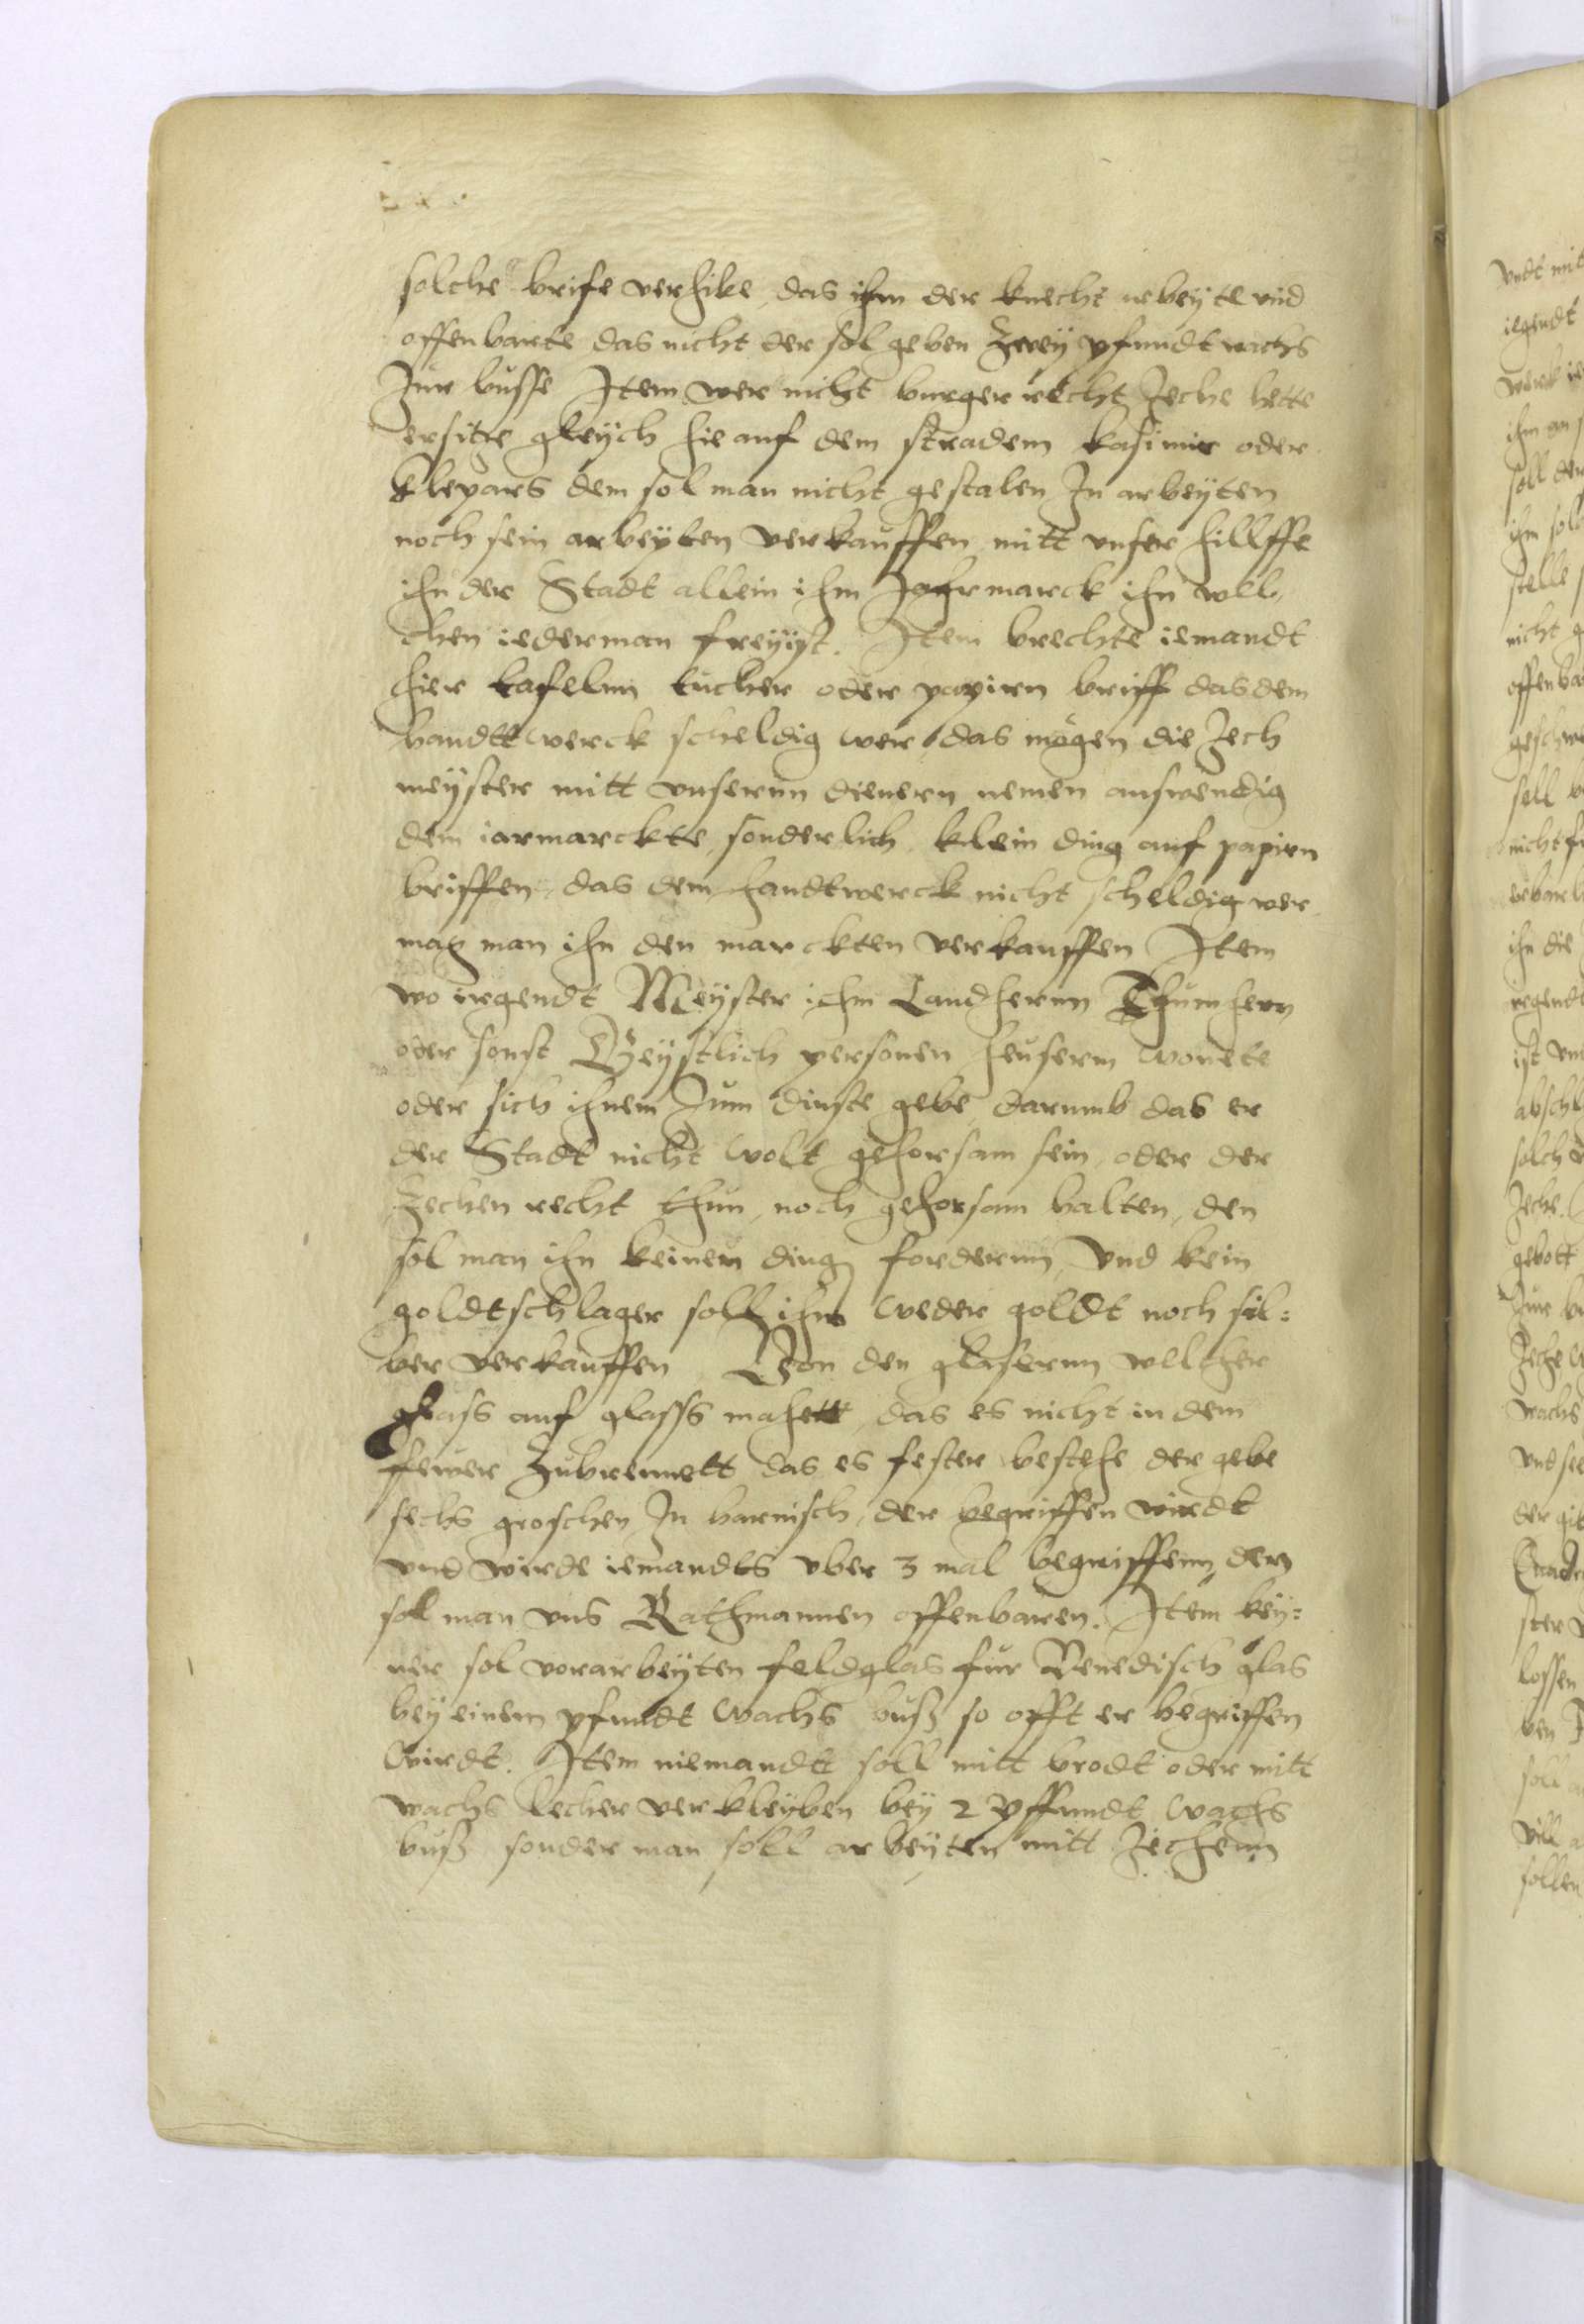 solche brife verhike, das ihm der knecht arbeyte vnd
offenbarte das nicht der sol geben Zwey pfundt wachs
Zur busse Item wer nicht burger recht Zeche hette
er sitze gleych hie auf dem stradem kasimir oder
klepars dem sol man nicht gestaten Zu arbeyten
noch sein arbeyten verkauffen mitt vnser hillffe
ihn der Stadt allein ihm Johrmarck ihn wel,
chen iederman freyist. Item brechte iemandt
hier tafelnn tucher oder papirn briff das dem
handttwerck scheldig wer das mögen die Zech
meyster mitt vnsernn dienern nemen auswendig
dem iarmarckte, sonderlich klein ding auf papirn
briffen, das dem handtwerck nicht scheldig wer
mag man ihn den marckten verkauffen Item
wo irgendt Meyster ihm Landhernn Thumhern
oder sonst Geystlich personen heusernn wonete
oder sich ihnem Zum dinste gebe darumb das er
der Stadt nicht wolt gehorsam sein, oder der
Zechen recht thun, noch gehorsam halten, den
sol man ihn keinem ding fordernn, vnd kein
goldtschlager soll ihm weder goldt noch sil:
ber verkauffen Von den glasernn welcher
glass auf glass mahett das es nicht in dem
fewer Zubrennett das es fester bestehe der gebe
sechs groschen Zu harnisch, der begriffen wirdt
vnd wirde iemandts vber 3 mal begriffenn, den
sol man vns Rathmannen offenbaren. Item key:
ner sol vorarbeyten feldglas für Venedisch glas
bey einem pfundt wachs buß so offt er begriffen
wirdt. Item niemandt soll mitt brodt oder mitt
wachs locher verkleyben bey 2 pffundt wachs
buß sonder man soll arbeyten mitt Zechenn